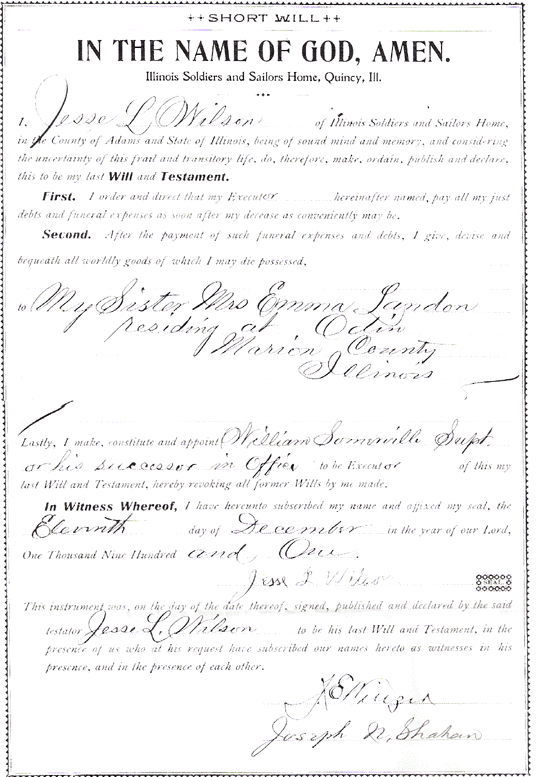 ++SHORT WILL++
IN THE NAME OF GOD, AMEN.
Illinois Soldiers and Sailors Home, Quincy, Ill.
I, Jesse L Wilson of Illinois Soldiers and Sailors Home,
in the County of Adams and State of Illinois, being of sound mind and memory, and considering
the uncertainty of this frail and transitory life, do, therefore, make, ordain, publish and declare,
this to be my last Will and Testament.
First. I order and direct that my Executor hereinafter named, pay all my just
debts and funeral expenses as soon after my decease as conveniently may be.
Second. After the payment of such funeral expenses and debts, I give, devise and
bequeath all worldly goods of which I may die possessed,
to My Sister Mrs Emma Landon
residing at Odin
Marion County
Illinois
Lastly, I make, constitute and appoint William Somerville Supt
or his successor in Office to be Executor of this my
last Will and Testament, hereby revoking all former Wills by me made.
In Witness Whereof, I have hereunto subscribed my name and affixed my seal, the
Eleventh day of December in the year of our Lord,
One Thousand Nine Hundred and One.
Jesse L Wilson
SEAL
This instrument was, on the day of the date thereof, signed, published and declared by the said
testator Jesse L. Wilson to be his last Will and Testament, in the
presence of us who at his request have subscribed our names hereto as witnesses in his
presence, and in the presence of each other.
Joseph N. Shahan